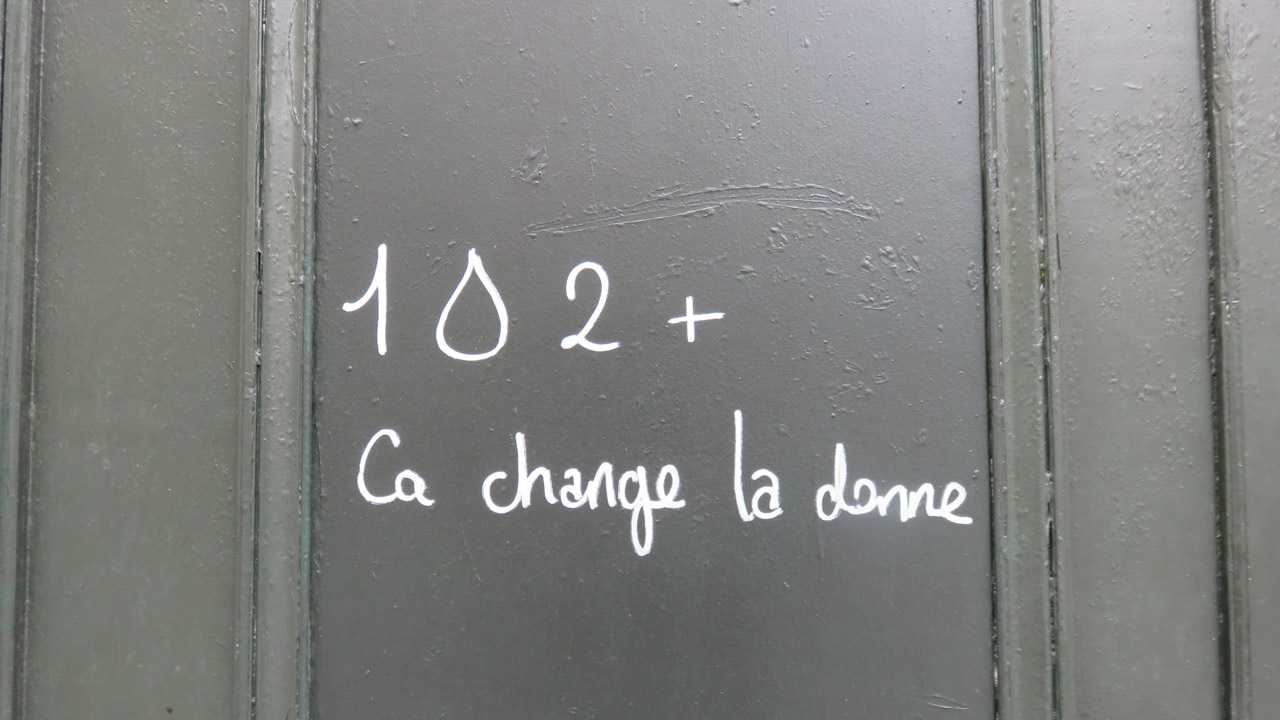 1 💧 2 +
Ca change la donne